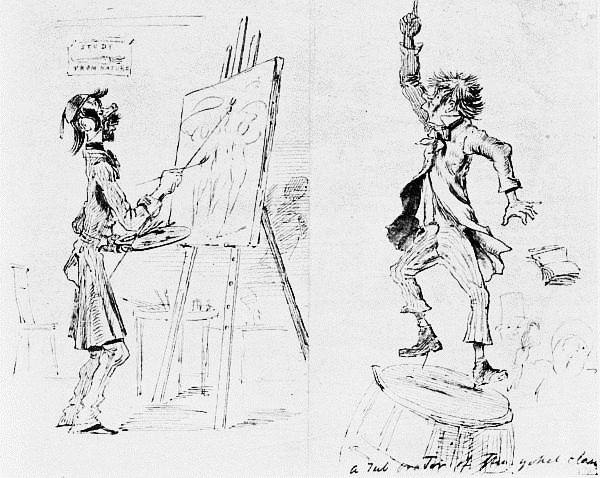 STUDY
FROM NATURE
a Tub orator of the yokel class